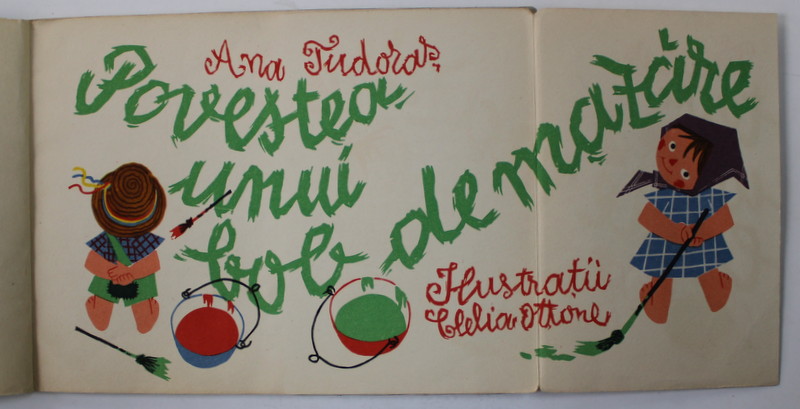 Ana Tudoraș
Povestea
unui
bob de mazăre
Ilustrații
Clelia Ottone